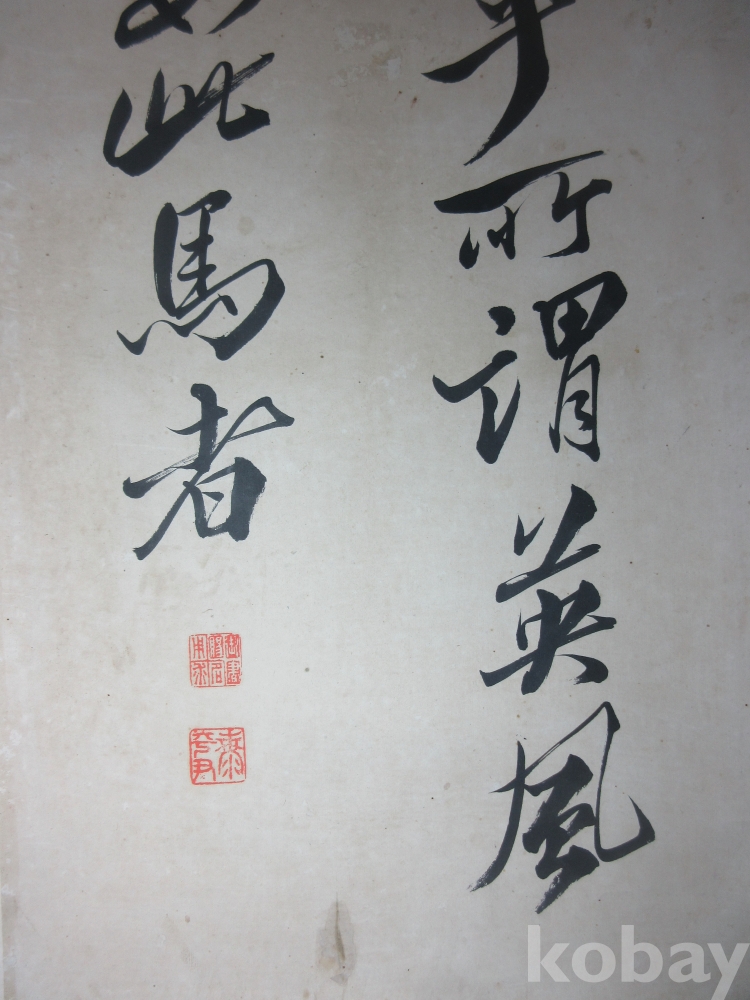 所謂英風
如此馬者
kobay